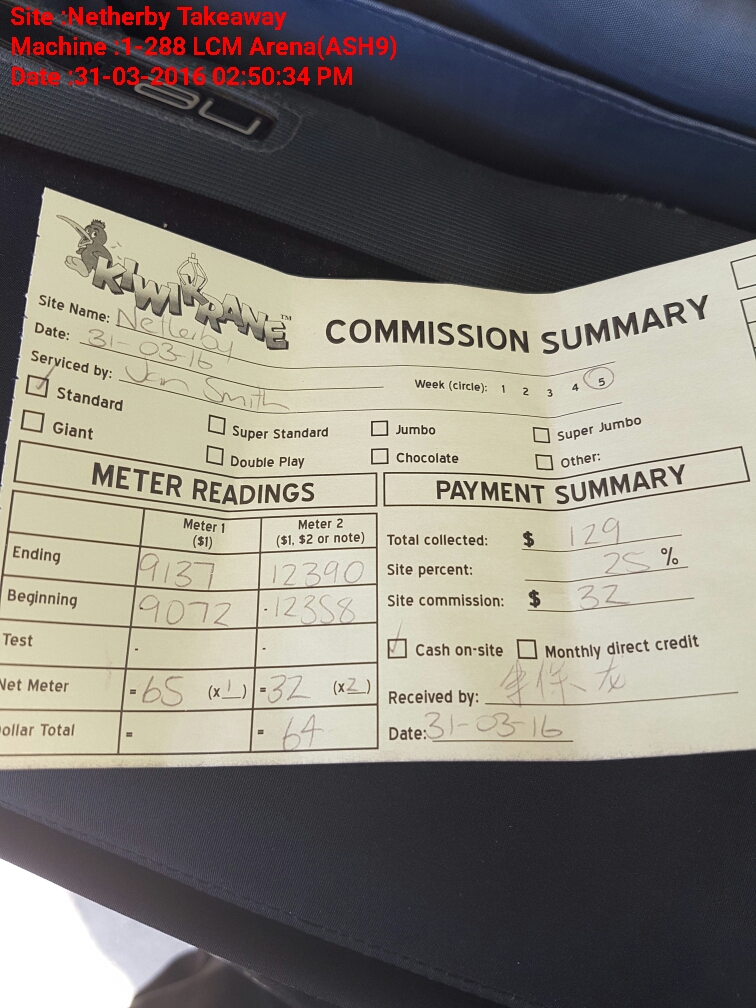 Site :Netherby Takeaway
Machine :1-288 LCM Arena(ASH9)
Date :31-03-2016 02:50:34 PM
KIWI KRANE™
COMMISSION SUMMARY
Site Name: Netherby
Date: 31-03-16
Serviced by: Jan Smith
Week (circle): 1 2 3 4 5
Standard
Super Standard
Jumbo
Super Jumbo
Giant
Double Play
Chocolate
Other:
METER READINGS
Meter 1 ($1)
Meter 2 ($1, $2 or note)
Ending 9137 12390
Beginning 9072 12358
Test - -
Net Meter = 65 (x 1) = 32 (x 2)
ollar Total = = 64
PAYMENT SUMMARY
Total collected: $ 129
Site percent: 25 %
Site commission: $ 32
Cash on-site
Monthly direct credit
Received by:
Date: 31-03-16